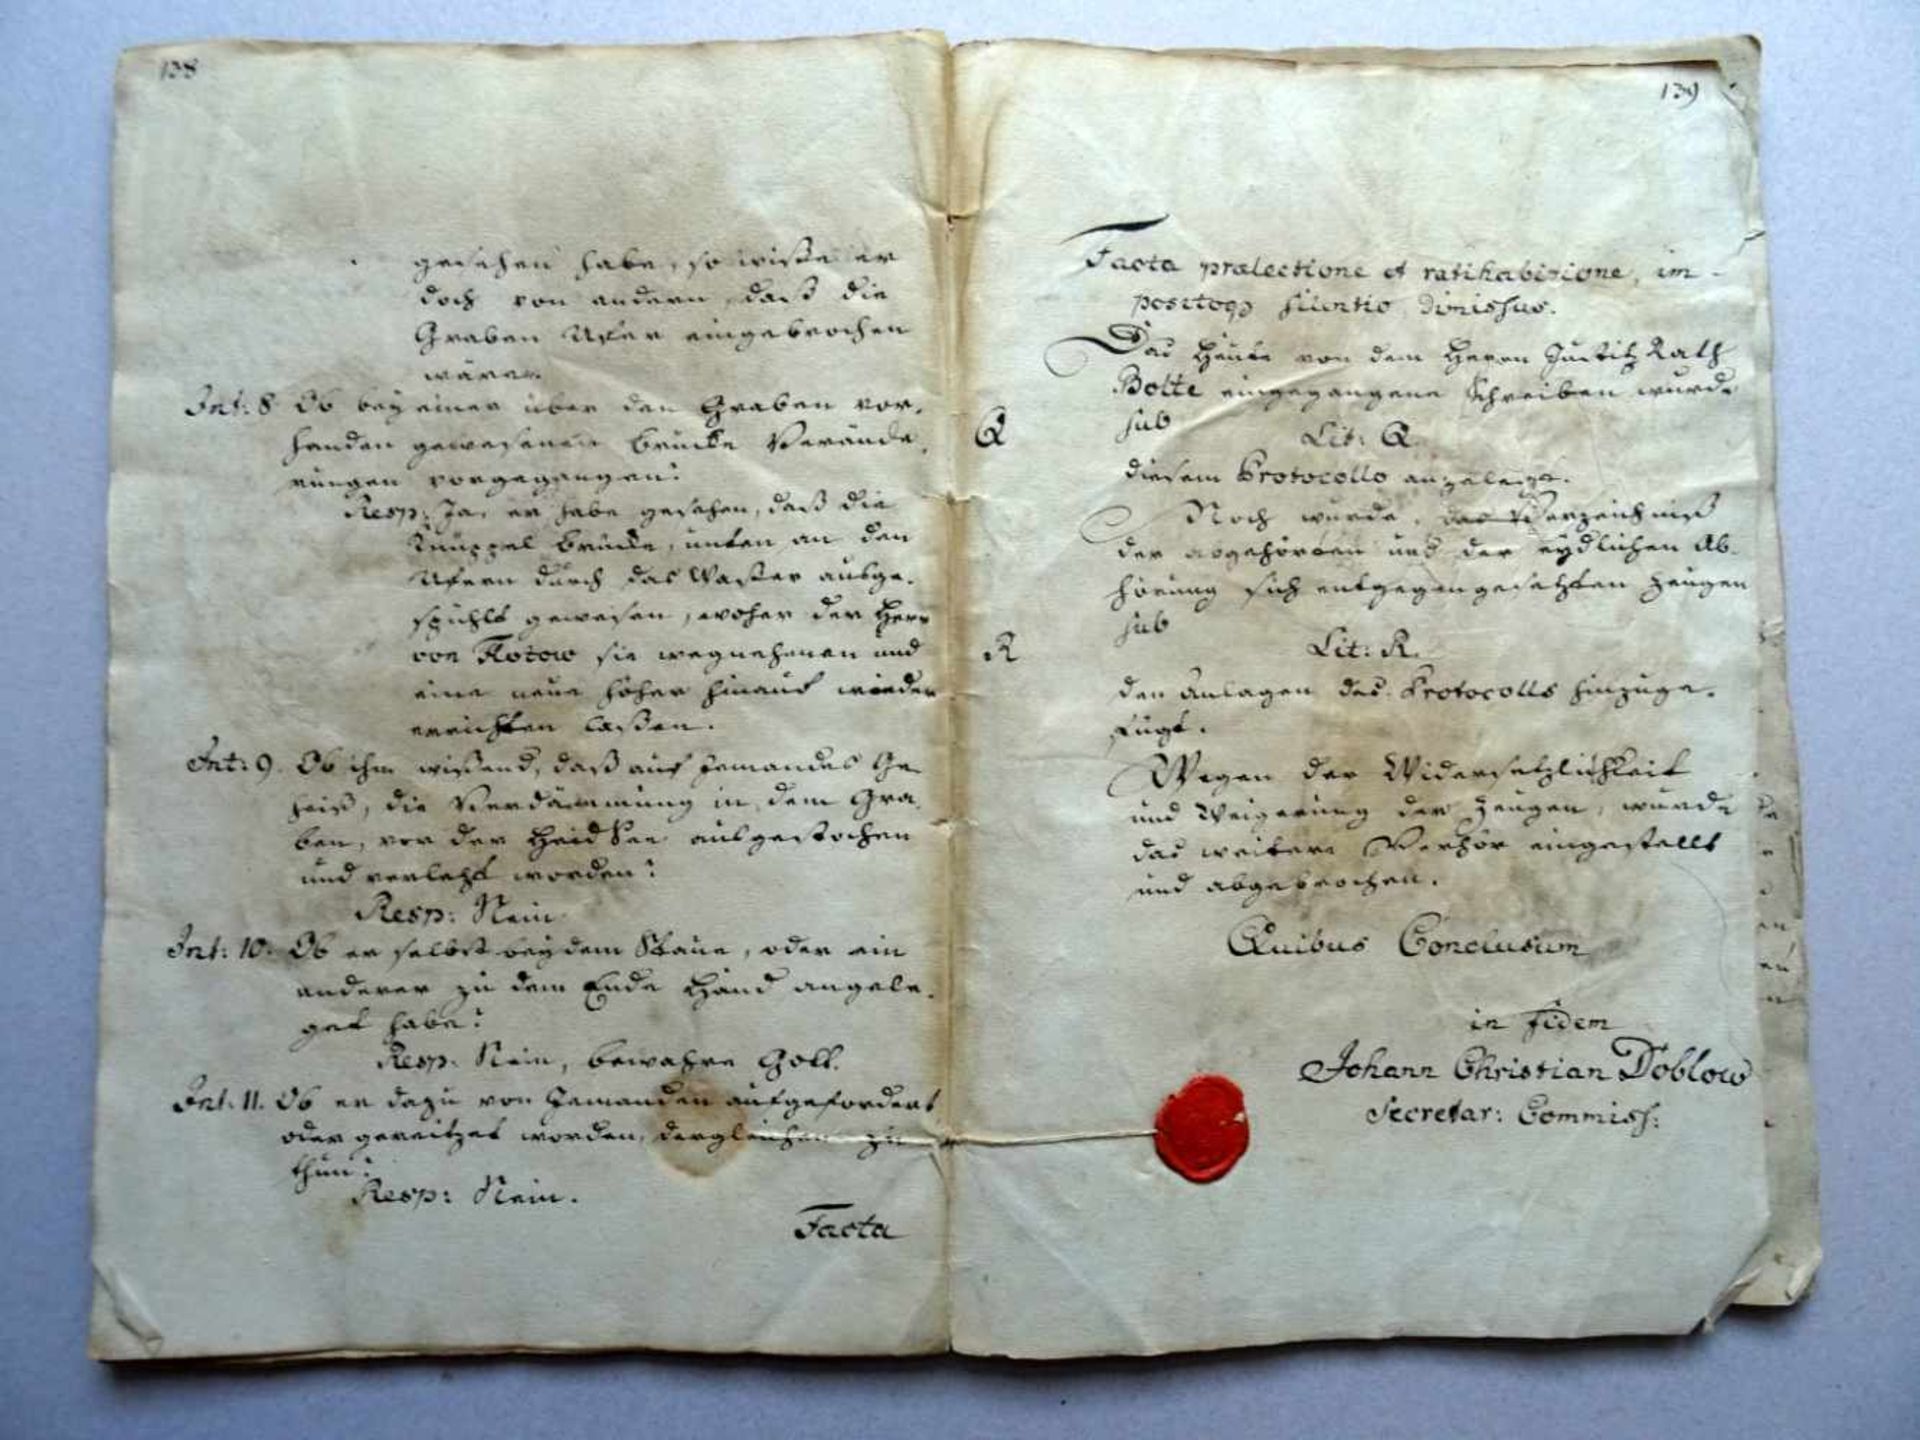 138
gesehen habe, so wiße er
doch von andern, daß die
Graben Ufer eingebrochen
wären.
Int: 8 Ob bey einer über den Graben vor-
handen gewesenen Brücke Verände-
rungen vorgegangen?
Resp: Ja, er habe gesehen, daß die
Knüppel Brücke, unten an den
Ufern durch das Waßer ausge-
spühlt gewesen, woher der Herr
von Flotow sie wegnehmen und
eine neue höher hinauf wieder
errichten laßen.
Int: 9. Ob ihm wißend, daß auf Jemandes Ge-
heiß, die Verdämmung in dem Gra-
ben, vor der Heid See ausgestochen
und verletzt worden?
Resp: Nein
Int: 10. Ob er selbst bey dem Staue, oder ein
anderer zu dem Ende Hand angele-
get habe?
Resp. Nein, bewahre Gott.
Int. 11. Ob er dazu von Jemanden aufgefordert
oder gereitzet worden, dergleichen zu
thun?
Resp: Nein.
Facta
139
Facta prælectione et ratihabitione, im-
positoq silentio dimissus.
Das heute von dem Herrn Justitz Rath
Bolte eingegangene Schreiben wurde
sub
Q Lit: Q.
diesem Protocollo angelegt.
Noch wurde, das Verzeichniß
der abgehörten und der eydlichen Ab-
hörung sich entgegengesetzten Zeugen
sub
R Lit: R.
den Anlagen des Protocolls hinzuge-
fügt.
Wegen der Widersetzlichkeit
und Weigerung der Zeugen, wurde
das weitere Verhör eingestellt
und abgebrochen.
Quibus Conclusum
in fidem
Johann Christian Doblow
Secretar: Commiss: